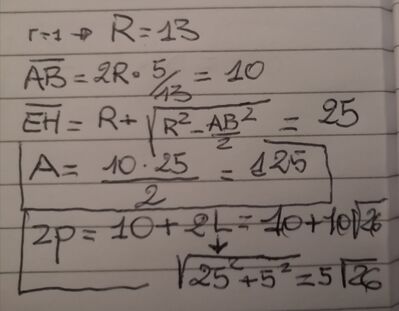 r=1 → R=13
AB = 2R · 5/13 = 10
EH = R + √(R² - AB²/2) = 25
A = 10 · 25 / 2 = 125
2p = 10 + 2L = 10 + 10√26
↓
√(25² + 5²) = 5√26